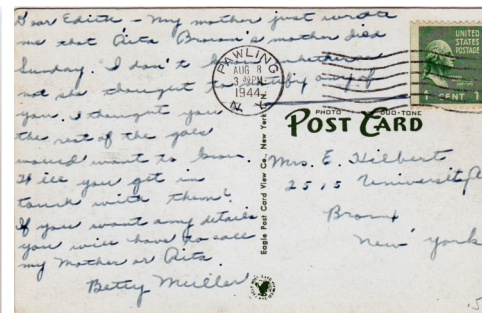 Dear Edith - My mother just wrote
me that Rita Brown's mother died
Sunday. I don't know whether
not she thought to notify any of
you. I thought you
the rest of the gals
would want to know.
Will you get in
touch with them?
If you want any details
you will have to call
my mother or Rita.
Betty Muller
PAWLING
AUG 8
3 PM
1944
N. Y.
UNITED
STATES
POSTAGE
1 CENT 1
PHOTO DUO-TONE
POST CARD
Eagle Post Card View Co., New York
Mrs. E. Hilbert
2515 University A
Bronx
New York
.5